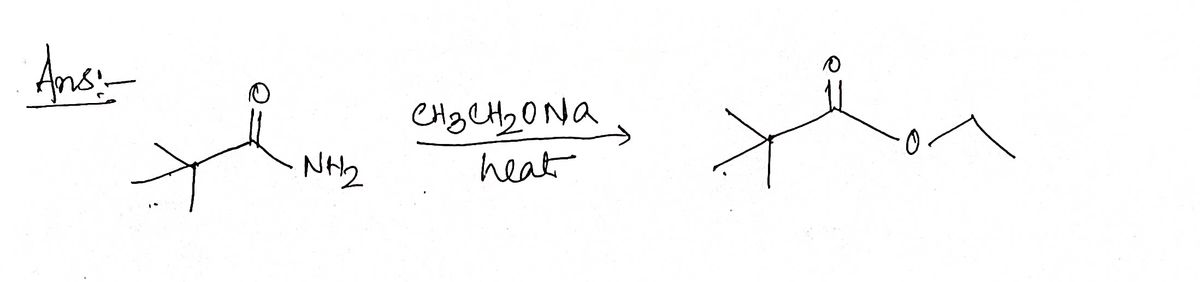 Ans:-
O
NH2
CH3CH2ONa
heat
O
O